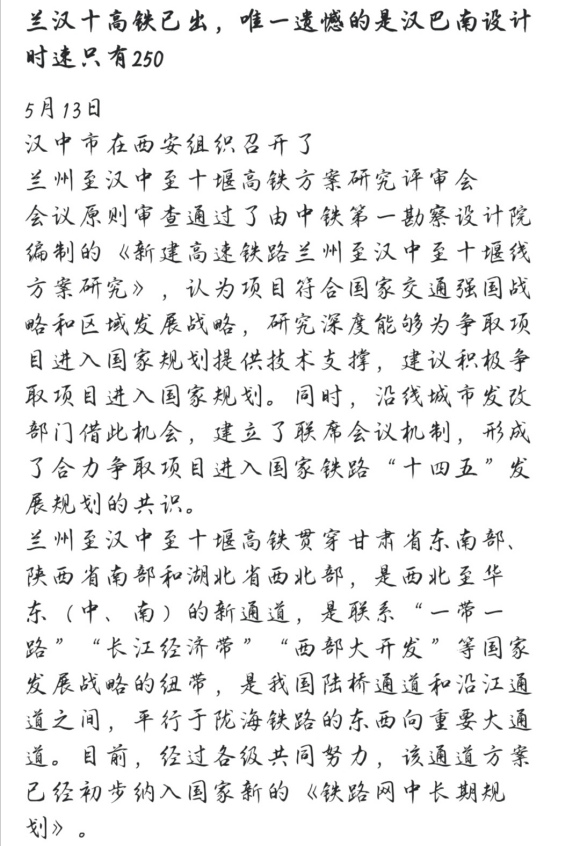 兰汉十高铁已出，唯一遗憾的是汉巴南设计
时速只有250
5月13日
汉中市在西安组织召开了
兰州至汉中至十堰高铁方案研究评审会
会议原则审查通过了由中铁第一勘察设计院
编制的《新建高速铁路兰州至汉中至十堰线
方案研究》，认为项目符合国家交通强国战
略和区域发展战略，研究深度能够为争取项
目进入国家规划提供技术支撑，建议积极争
取项目进入国家规划。同时，沿线城市发改
部门借此机会，建立了联席会议机制，形成
了合力争取项目进入国家铁路“十四五”发
展规划的共识。
兰州至汉中至十堰高铁贯穿甘肃省东南部、
陕西省南部和湖北省西北部，是西北至华
东（中、南）的新通道，是联系“一带一
路”“长江经济带”“西部大开发”等国家
发展战略的纽带，是我国陆桥通道和沿江通
道之间，平行于陇海铁路的东西向重要大通
道。目前，经过各级共同努力，该通道方案
已经初步纳入国家新的《铁路网中长期规
划》。